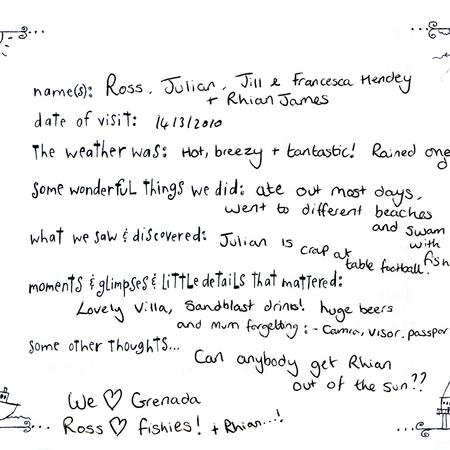 name(s): Ross, Julian, Jill & Francesca Hendey
+ Rhian James
date of visit: 14/3/2010
the weather was: Hot, breezy + tantastic! Rained one
some wonderful things we did: ate out most days,
went to different beaches
and swam
with
fish
what we saw & discovered: Julian is crap at
table football!
moments & glimpses & little details that mattered:
Lovely Villa, Sandblast drinks! huge beers
and mum forgetting :- Camra, visor, passpor
some other thoughts...
Can anybody get Rhian
out of the sun??
We ♡ Grenada
Ross ♡ fishies! + Rhian...!